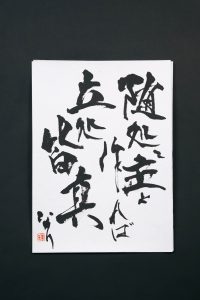 随処に主と
作れば
立処
皆真